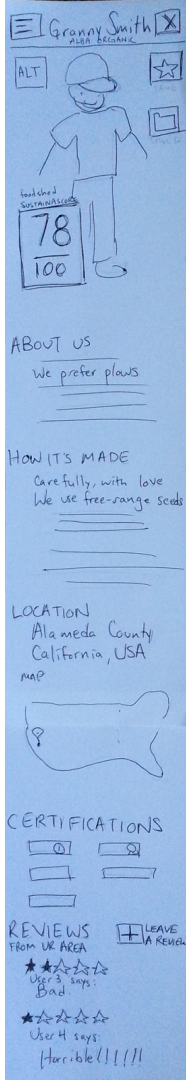 Granny Smith X
ALBA ORGANIC
ALT
foodshed
SUSTAINASCORE
78
100
ABOUT US
We prefer plows
HOW IT'S MADE
Carefully, with love
We use free-range seeds
LOCATION
Alameda County
California, USA
MAP
CERTIFICATIONS
REVIEWS
FROM UR AREA
+ LEAVE
A REVIEW
User 3 says:
Bad.
User 4 says:
Horrible!!!!!!